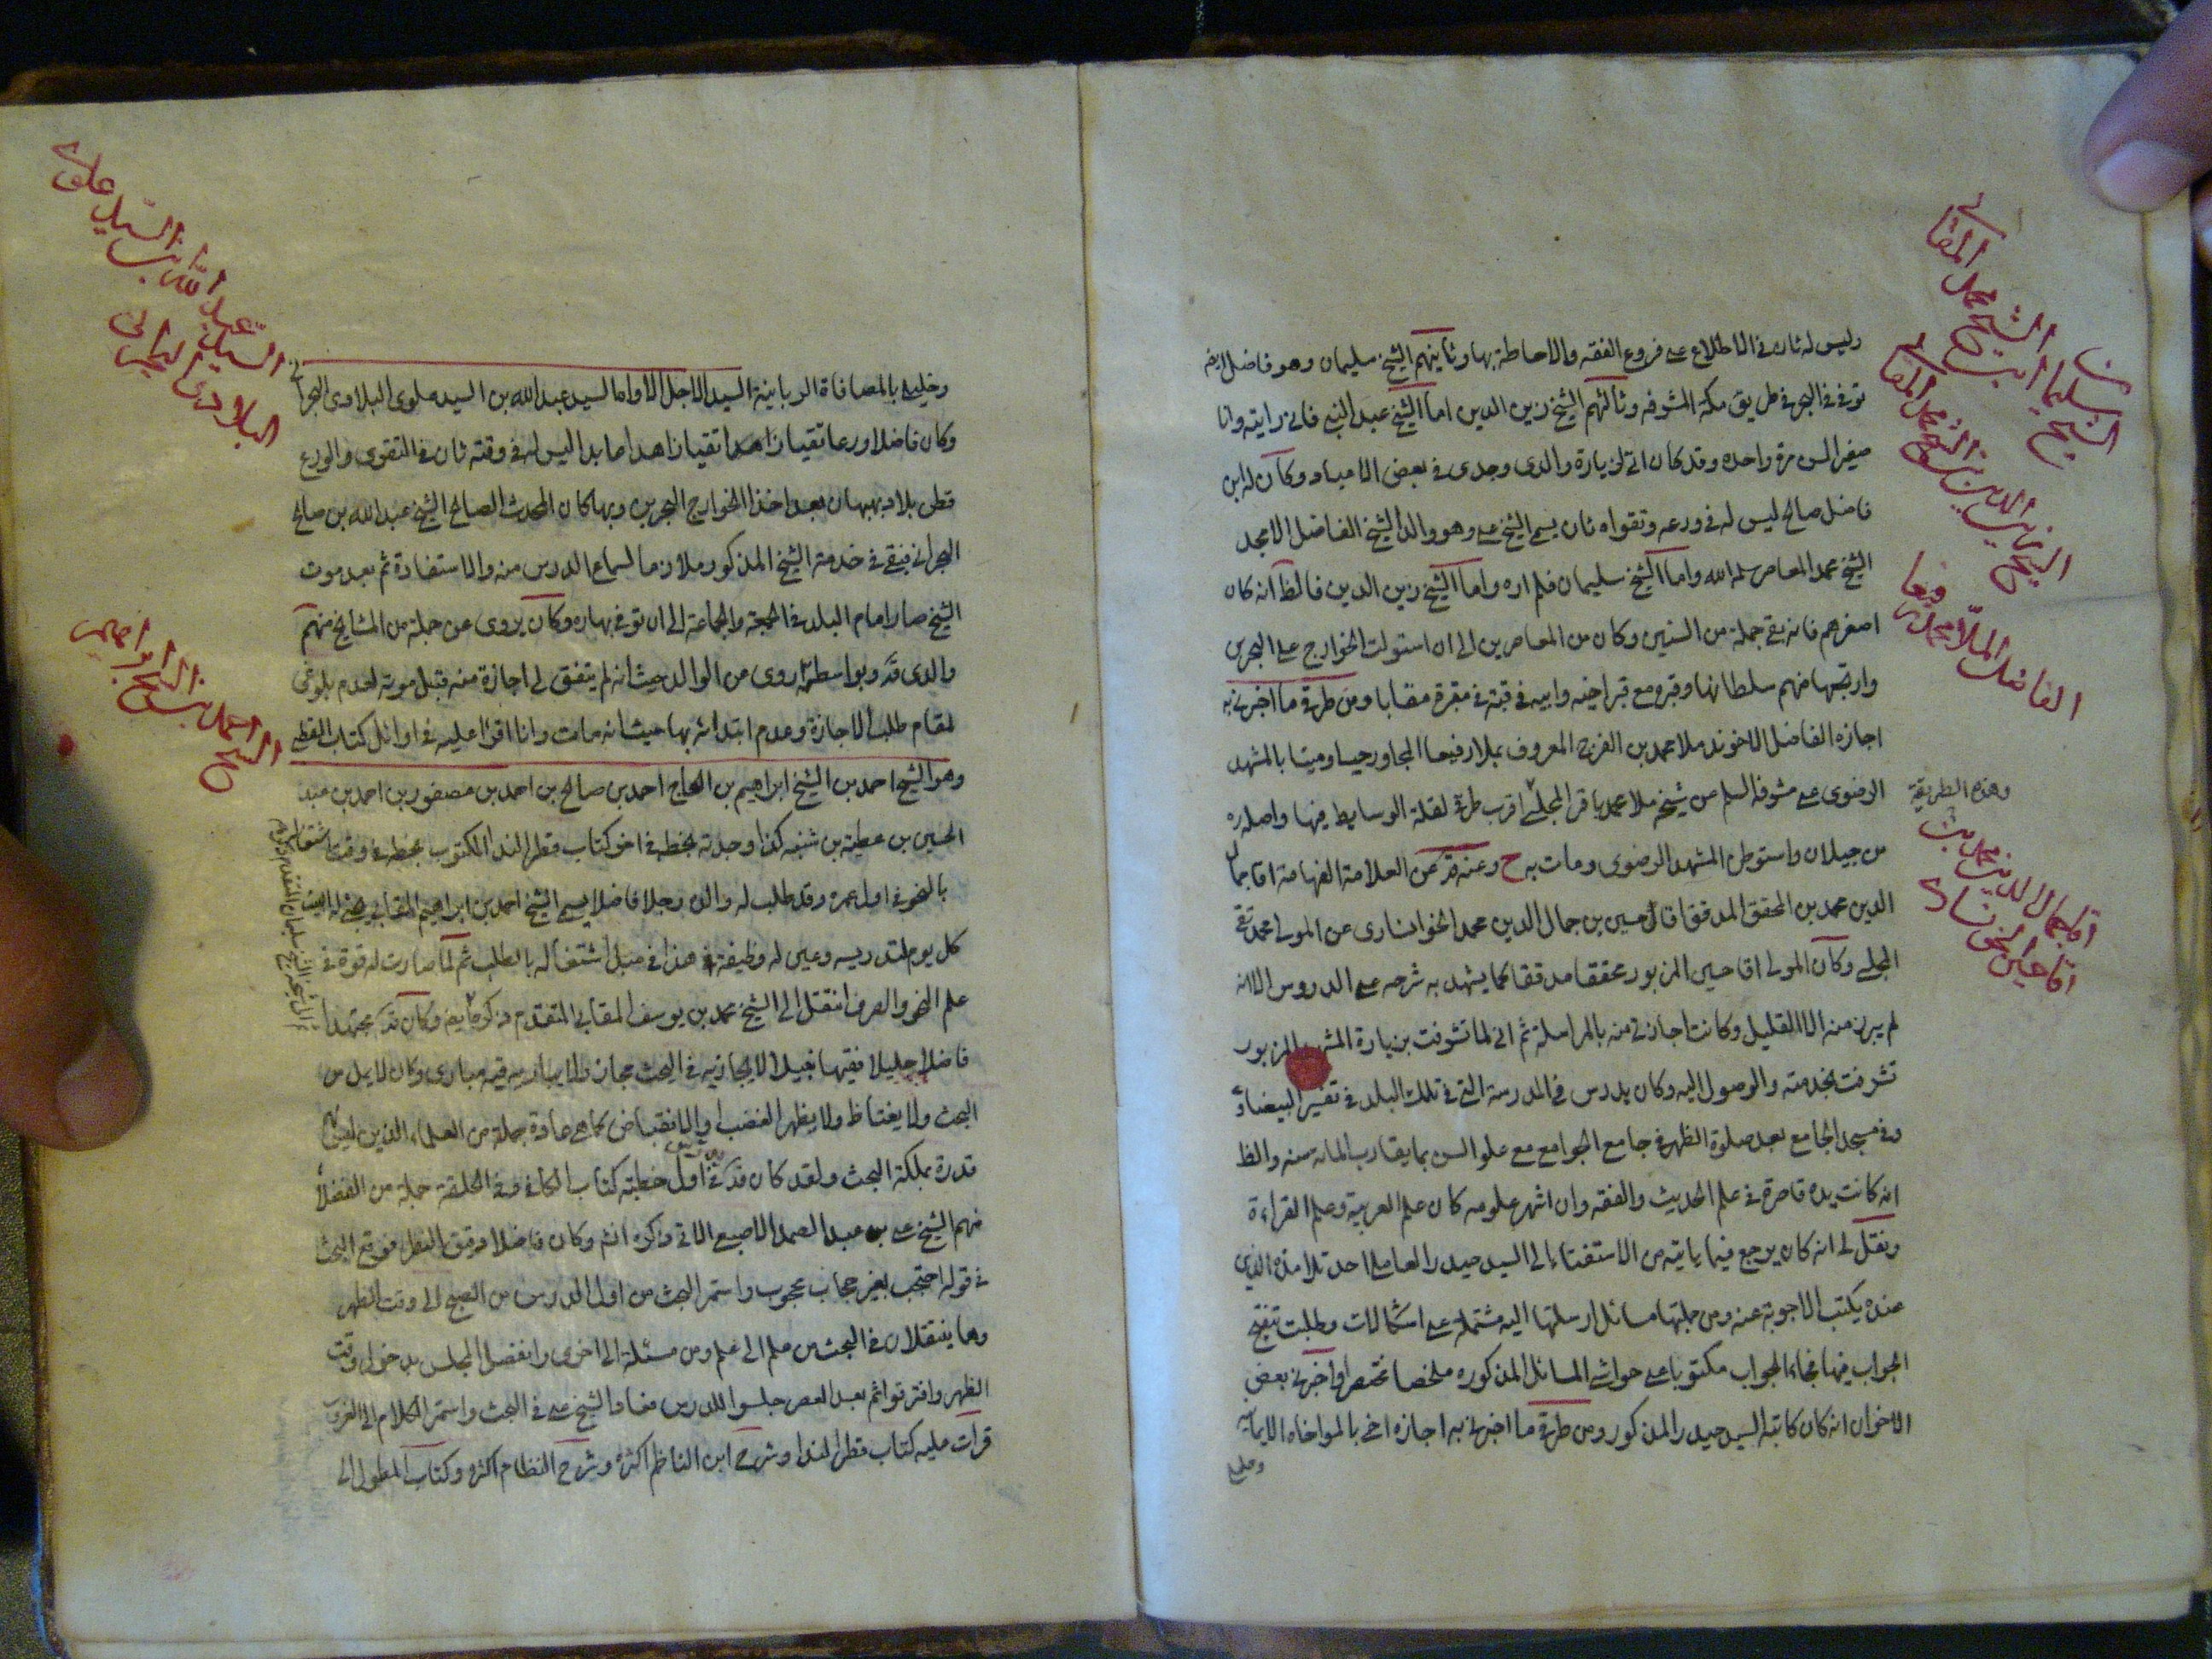 وليس له ثان في الاطلاع على فروع الفقه والاحاطة بها وثانيهم الشيخ سليمان وهو فاضل ايضا
توفي في البحر في طريق مكة المشرفه وثالثهم الشيخ زين الدين اما الشيخ عبد النبي فاني رايته وانا
صغير السن مرة واحده وقد كان اتى لزيارة والدى وجدى في بعض الاعياد وكان له ابن
فاضل صالح ليس له في ورعه وتقواه ثان يسمى الشيخ على وهو والد الشيخ الفاضل الامجد
الشيخ محمد المعاصر سلمه الله واما الشيخ سليمان فلم اره واما الشيخ زين الدين فالظ انه كان
اصغرهم فانه بقى جملة من السنين وكان من المعاصرين الى ان استولت الخوارج على البحرين
سلطانها وقبره مع قبر اخيه وابيه في قبة في مقبرة مقابا ومن طرقي ما اخبرني به
اجازه الفاضل الاخوند ملا محمد بن الفرج المعروف بملا رفيعا المجاور حيا وميتا بالمشهد
الرضوى على مشرفه السلم عن شيخه ملا محمد باقر المجلسي اقرب طرقي لقلة الوسايط فيها واصله ره
من جيلان واستوطن المشهد الرضوى ومات به ح وعنه قده عن العلامة الفهامة اقا جمال
الدين محمد بن المحقق المدقق اقا حسين بن جمال الدين محمد الخوانسارى عن المولى محمد تقى
المجلسي وكان المولى اقا حسين المزبور محققا مدققا كما يشهد به شرحه على الدروس الا انه
لم يبرز منه الا القليل وكانت اجازتي منه بالمراسلة ثم انى لما تشرفت بزيارة المشهد المزبور
تشرفت بخدمته والوصول اليه وكان يدرس في المدرسة التي في تلك البلد في تفسير البيضاوى
وفي مسجد الجامع بعد صلوة الظهر في جامع الجوامع مع علو السن بما يقارب المائة سنه والظ
انه كانت يده قاصرة في علم الحديث والفقه وان اشهر علومه كان علم العربية وعلم القراءة
ونقل لى انه كان يرجع فيما ياتيه من الاستفتاء الى السيد حيدر العاملى احد تلامذه الذي
عنده يكتب الاجوبة عنه ومن جملتها مسائل ارسلتها اليه مشتملة على اشكالات وطلبت تنقيح
الجواب فيها فجاء الجواب مكتوبا على حواشي المسائل المذكوره ملخصا مختصرا واخبرني بعض
الاخوان انه كان كاتبه السيد حيدر المذكور ومن طرقي ما اخبرني به اجازه اخى بالمواخاه الايمانيه
وخليلى
الشيخ سليمان ابن الشيخ محمد المقابي
الشيخ زين الدين بن الشيخ محمد المقابي
الفاضل الملا محمد رفيعا
وهذه الطريقة
اقا جمال الدين محمد بن
اقا حسين الخونسارى
وخليلى بالمصافاة الربانية السيد الاجل الاواه السيد عبد الله بن السيد علوى البلادى البحراني
وكان فاضلا ورعا تقيا زاهدا تقيا زاهدا عابدا ليس له في وقته ثان في التقوى والورع
قطن بلاد بهبهان بعد اخذ الخوارج البحرين وبها كان المحدث الصالح الشيخ عبد الله بن صالح
البحراني فبقى في خدمة الشيخ المذكور ملازما لسماع الدرس منه والاستفادة ثم بعد موت
الشيخ صار امام البلد في الجمعة والجماعة الى ان توفي بها ره وكان يروى عن جملة من المشايخ منهم
والدى قده وبواسطته اروى عن الوالد حيث انه لم يتفق لى اجازة منه قبل موته لعدم بلوغى
لمقام طلب الاجازة وعدم ابتدائه بها حيث انه مات وانا اقرا عليه في اوائل كتاب القطبي
وهو الشيخ احمد بن الشيخ ابراهيم بن الحاج احمد بن صالح بن احمد بن عصفور بن احمد بن عبد
الحسين بن عطية بن شنبه كذا وجدته بخطه في اخر كتاب قطر الندا المكتوب بخطه في وقت اشتغاله
بالنحو في اول عمره وقد طلب له والده رجلا فاضلا يسمى الشيخ احمد بن ابراهيم المقابي يجئ له البيت
كل يوم لتدريسه وعين له وظيفة هذا في مبدأ اشتغاله بالطلب ثم لما صارت له قوة في
علم النحو والصرف انتقل الى الشيخ محمد بن يوسف المقابي المتقدم ذكره ايضا وكان قده مجتهدا
فاضلا جليلا فقيها نبيلا لا يجاريه في البحث مجار ولا يباريه فيه مبارى وكان لا يمل من
البحث ولا يغتاظ ولا يظهر الغضب والانقباض كما هى عادة جملة من العلماء الذين ليس لهم
قدرة بملكة البحث ولقد كان قده يدرس في اول خطبة كتاب الكافى وفي الحلقة جملة من الفضلاء
منهم الشيخ على بن عبد الصمد الاصبعي الاتي ذكره انش وكان فاضلا دقيق النظر فوقع البحث
في قوله احتجب بغير حجاب محجوب واستمر البحث من اول الدرس من الصبح الى وقت الظهر
وهما ينتقلان في البحث من علم الى علم ومن مسئلة الى اخرى وانفصل المجلس بدخول وقت
الظهر وافترقوا ثم بعد العصر جلسوا للدرس فعاد الشيخ على في البحث واستمر الكلام الى الغروب
قرات عليه كتاب قطر الندا وشرح ابن الناظم اكثره وشرح النظام اكثره وكتاب المطول الى
السيد عبد الله بن السيد علوى
البلادى البحراني
الشيخ احمد بن الشيخ ابراهيم